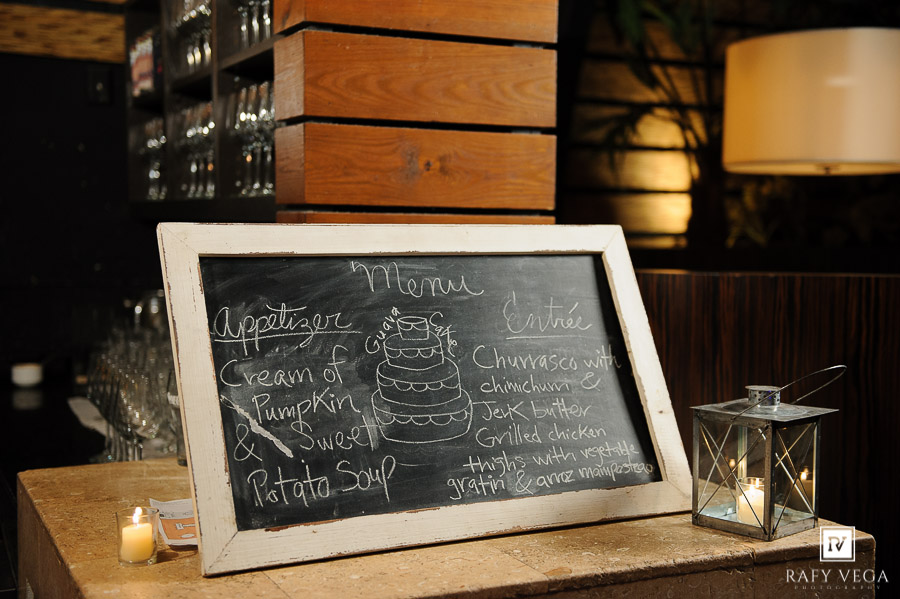 Menu
Appètizer
Cream of
Pumpkin
& Sweet
Potato Soup
Guava Cake
Entrée
Churrasco with
chimichurri &
Jerk butter
Grilled chicken
thighs with vegetable
gratin & arroz mamposteao
RV
RAFY VEGA
PHOTOGRAPHY